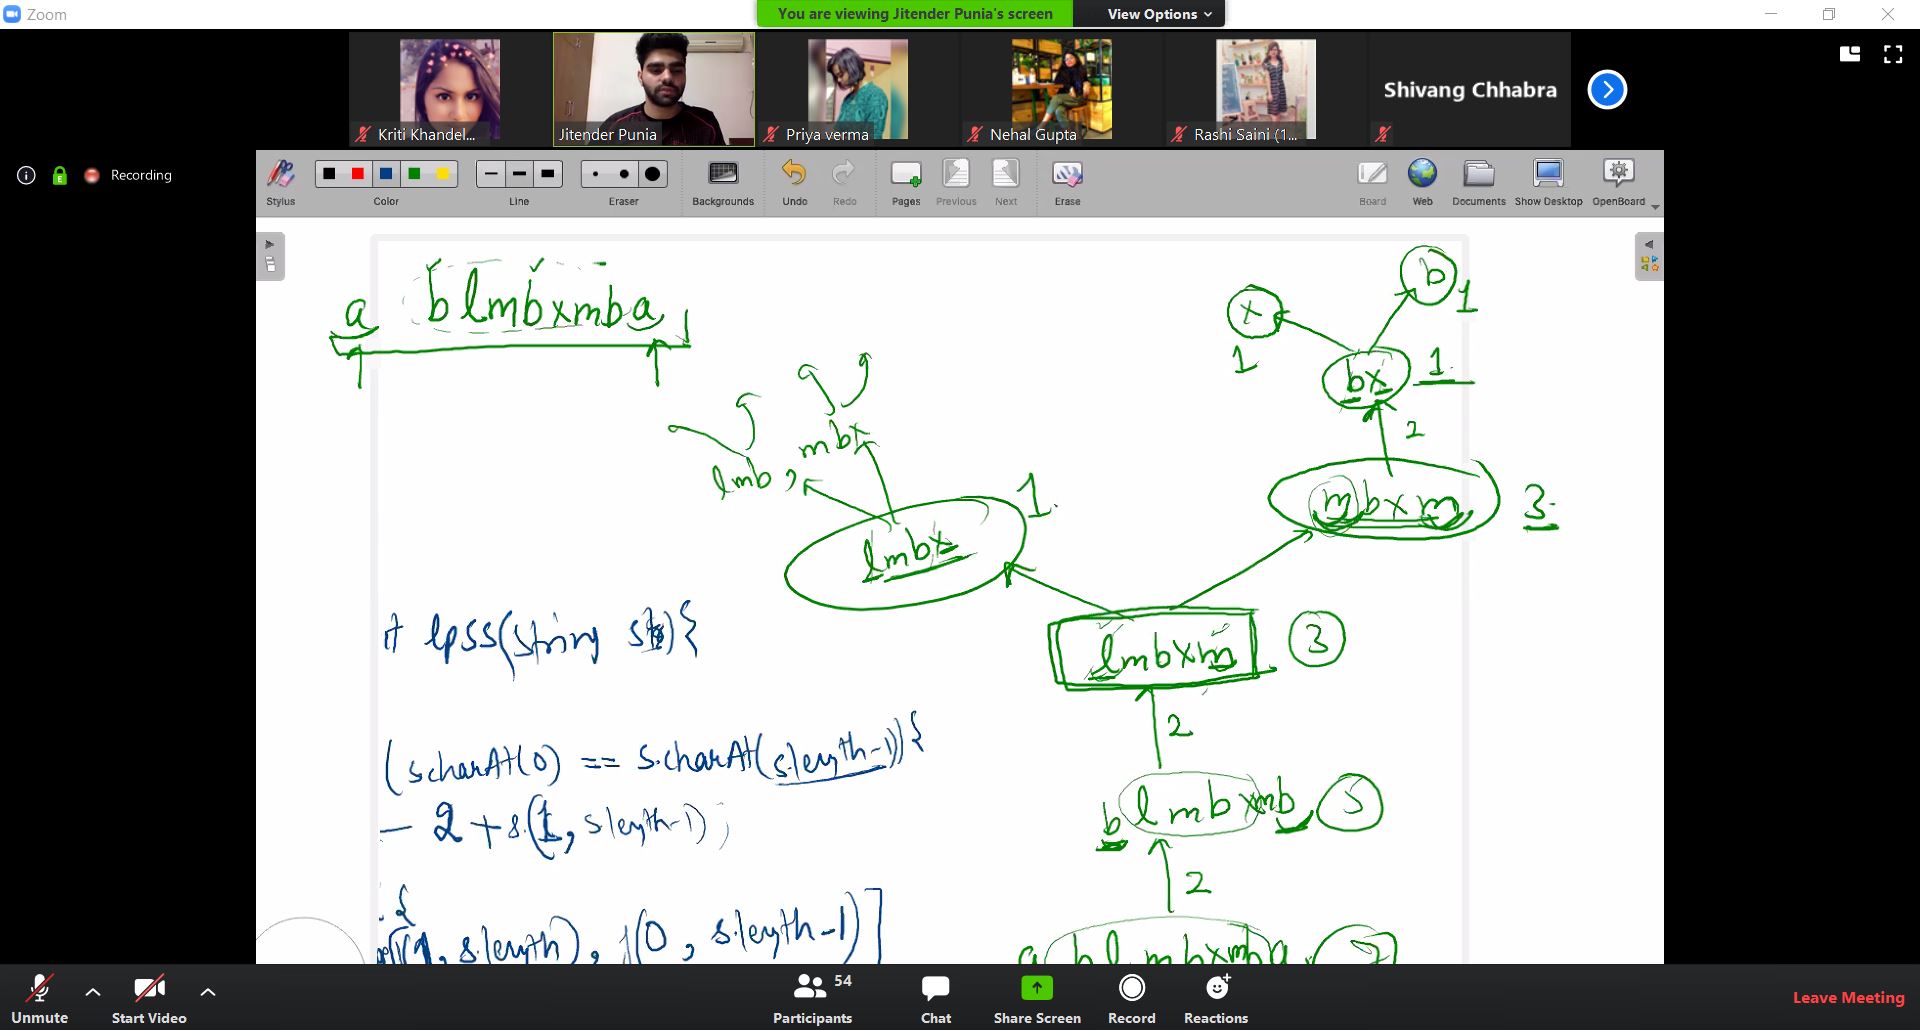 Zoom
You are viewing Jitender Punia's screen
View Options
Kriti Khandel...
Jitender Punia
Priya verma
Nehal Gupta
Rashi Saini (1...
Shivang Chhabra
Recording
Stylus
Color
Line
Eraser
Backgrounds
Undo
Redo
Pages
Previous
Next
Erase
Board
Web
Documents
Show Desktop
OpenBoard
a blmbxmba
b
1
x
1
bx 1
2
mbx
lmb ,
mbxm 3
lmbx 1
lmbxm 3
2
b lmbxmb 5
2
a blmbxmba 7
lpss(string
(s.charAt(0) == s.charAt(s.length-1)){
2 + s.(1, s.length-1);
{
, s.length), (0, s.length-1)]
Unmute
Start Video
Participants
54
Chat
Share Screen
Record
Reactions
Leave Meeting